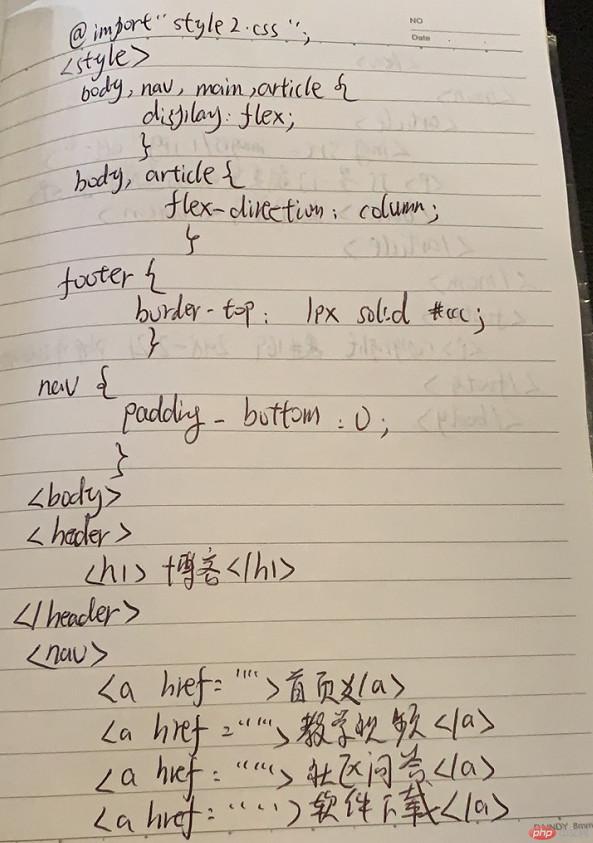 NO
Date
@import "style2.css";
<style>
body, nav, main, article {
display: flex;
}
body, article {
flex-direction: column;
}
footer {
border-top: 1px solid #ccc;
}
nav {
padding-bottom: 0;
}
<body>
<header>
<h1>博客</h1>
</header>
<nav>
<a href="">首页</a>
<a href="">教学视频</a>
<a href="">社区问答</a>
<a href="">软件下载</a>
8mm
php